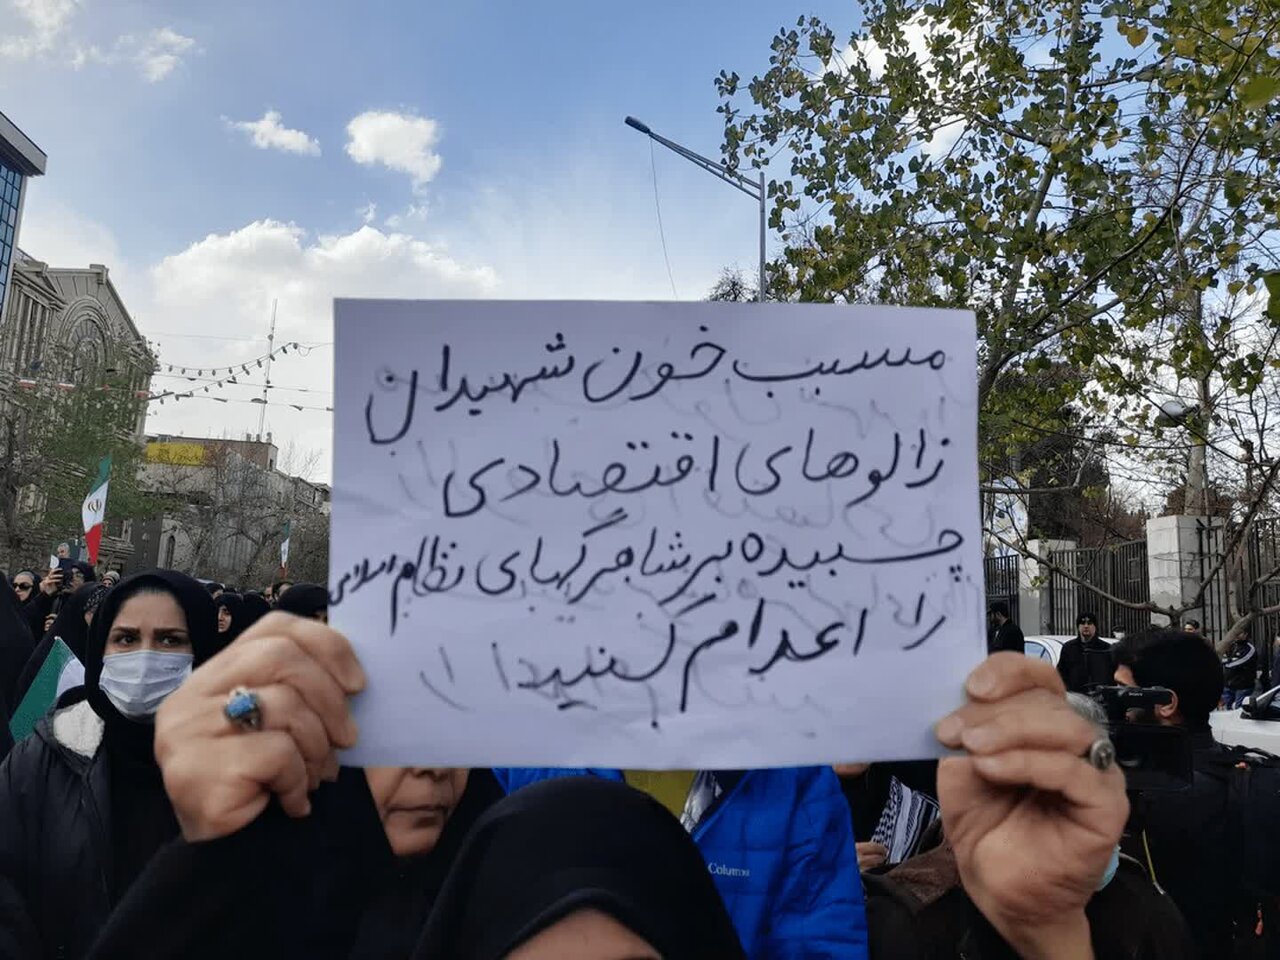 مسبب خون شهیدان
زالوهای اقتصادی
چسبیده بر شاهرگهای نظام اسلامی
را اعدام کنید
Columbia